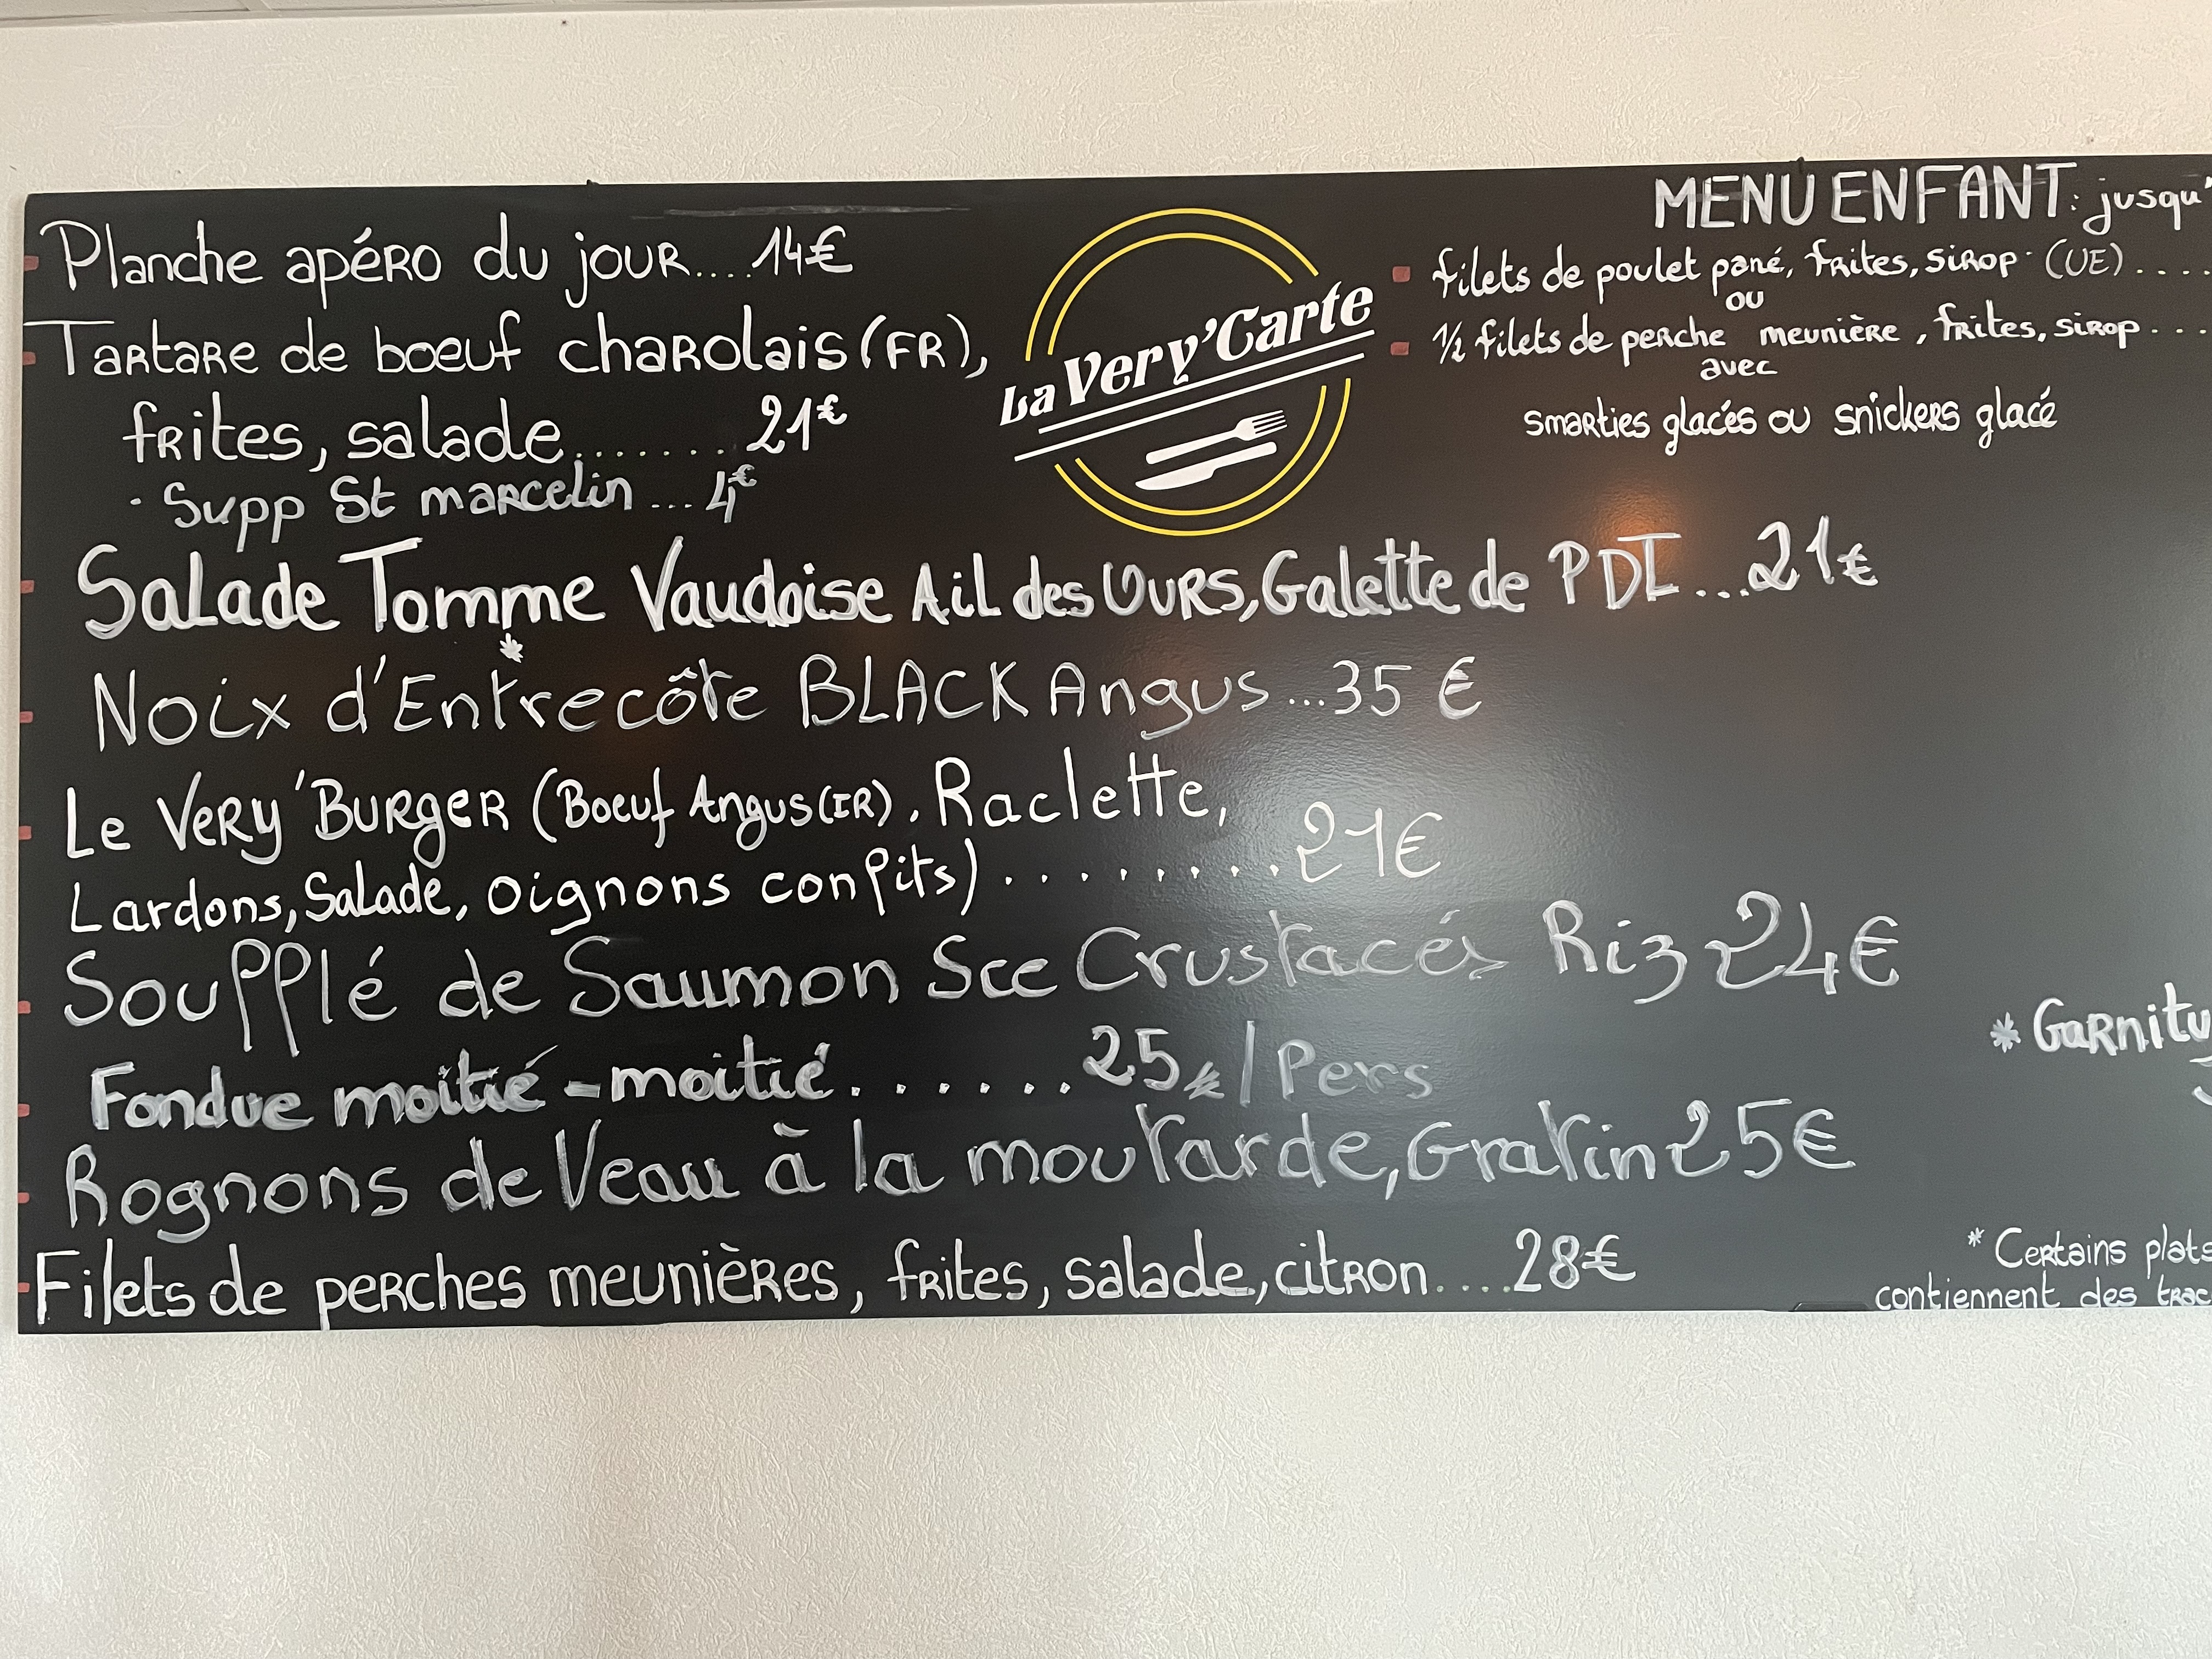 Planche apéro du jour....14€
Tartare de boeuf charolais (FR),
frites, salade....... 21€
- Supp St marcelin ... 4€
Salade Tomme Vaudoise Ail des Ours, Galette de PDT ...21€
*
Noix d'Entrecôte BLACK Angus ...35 €
Le Very'Burger (Boeuf Angus (IR), Raclette,
Lardons, Salade, oignons confits) ......... 21€
Soufflé de Saumon Sce Crustacés Riz 24€
Fondue moitié - moitié ...... 25€ / Pers
Rognons de Veau à la moutarde, Gratin 25€
Filets de perches meunières, frites, salade, citron....28€
La Very'Carte
MENU ENFANT: jusqu'
filets de poulet pané, frites, sirop (UE) ....
ou
1/2 filets de perche meunière, frites, sirop ...
avec
smarties glacés ou snickers glacé
* Garnitu
* Certains plats
contiennent des trac